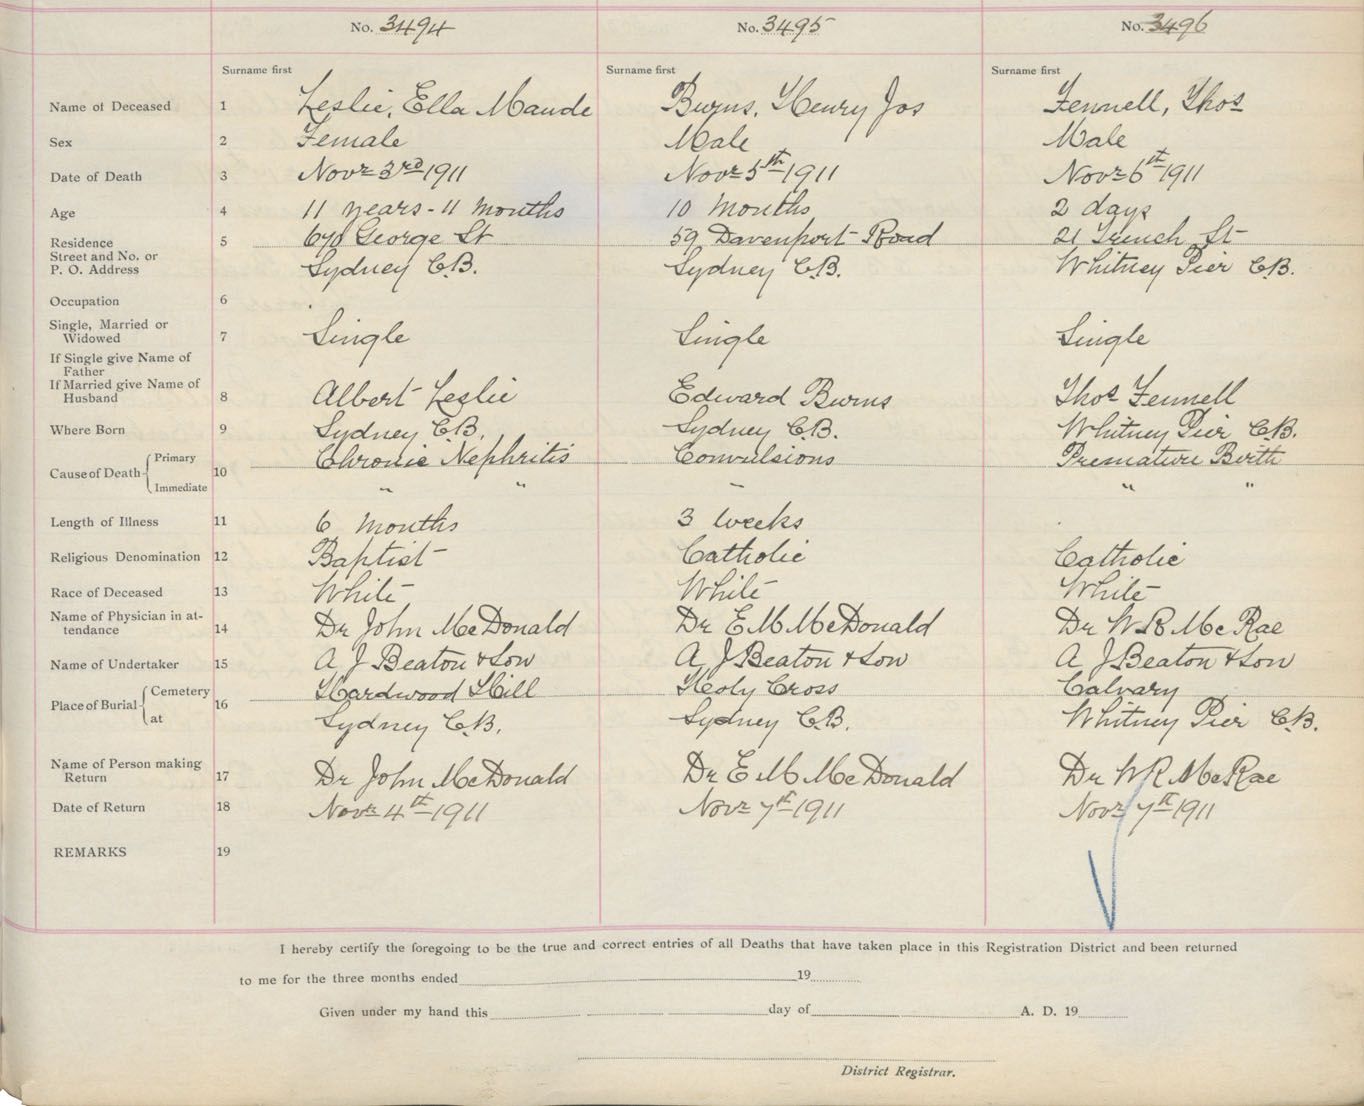 No. 3494 No. 3495 No. 3496
Surname first Surname first Surname first
Name of Deceased 1 Leslie, Ella Maude Burns, Henry Jos Fennell, Thos
Sex 2 Female Male Male
Date of Death 3 Novr 3rd 1911 Novr 5th 1911 Novr 6th 1911
Age 4 11 years - 11 months 10 months 2 days
Residence 5 670 George St 59 Davenport Road 21 French St
Street and No. or
P. O. Address Sydney C.B. Sydney C.B. Whitney Pier C.B.
Occupation 6
Single, Married or
Widowed 7 Single Single Single
If Single give Name of
Father
If Married give Name of
Husband 8 Albert Leslie Edward Burns Thos Fennell
Where Born 9 Sydney C.B. Sydney C.B. Whitney Pier C.B.
Primary Chronic Nephritis Convulsions Premature Birth
Cause of Death 10
Immediate " " " " "
Length of Illness 11 6 months 3 weeks
Religious Denomination 12 Baptist Catholic Catholic
Race of Deceased 13 White White White
Name of Physician in at-
tendance 14 Dr John McDonald Dr E M McDonald Dr W R McRae
Name of Undertaker 15 A J Beaton & Son A J Beaton & Son A J Beaton & Son
Cemetery Hardwood Hill Holy Cross Calvary
Place of Burial 16
at Sydney C.B. Sydney C.B. Whitney Pier C.B.
Name of Person making
Return 17 Dr John McDonald Dr E M McDonald Dr W R McRae
Date of Return 18 Novr 4th 1911 Novr 7th 1911 Novr 7th 1911
REMARKS 19
I hereby certify the foregoing to be the true and correct entries of all Deaths that have taken place in this Registration District and been returned
to me for the three months ended 19
Given under my hand this day of A. D. 19
District Registrar.